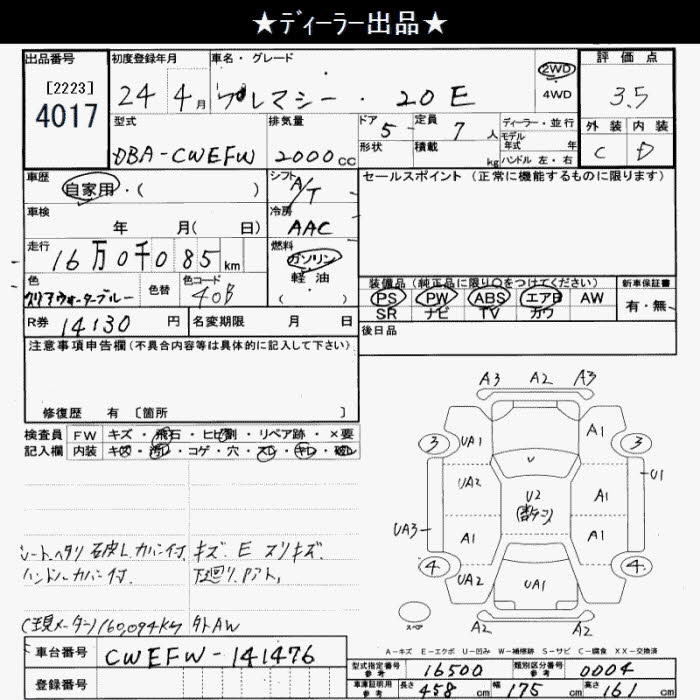 ★ディーラー出品★
出品番号 初度登録年月 車名・グレード 評価点
[2223]
4017 24年4月 プレマシー・20E 2WD 4WD 3.5
型式 排気量 ドア 5 定員 7人 ディーラー・並行 外装 内装
モデル年式 年
DBA-CWEFW 2000cc 形状 積載 kg ハンドル 左・右 C D
車歴 自家用・( ) シフト A/T セールスポイント (正常に機能するものに限ります)
車検 年 月( 日) 冷房 AAC
走行 16万0千085km 燃料 ガソリン 軽油 ( )
色 クリアウォーターブルー 色替 色コード 40B
装備品(純正品に限り○をつけてください) 新車保証書
PS PW ABS エアB AW 有・無
SR ナビ TV カワ
R券 14130円 名変期限 月 日 後日品
注意事項申告欄(不具合内容等は具体的に記入して下さい)
修復歴 有 〔箇所 〕
検査員 FW キズ・飛石・ヒビ割・リペア跡・×要
記入欄 内装 キズ・汚レ・コゲ・穴・スレ・キレ・破レ
シートヘタリ 石皮レ カバー付 キズ E スリキズ
ハンドルカバー付 下廻り
(現メーター)160,094km 外AW
A3 A2 A3
3 UA1 A1 3
UA2 V U2 A1 U1
UA3 A1 A1
4 UA2 UA1 4
スペア A2 A2
A-キズ E-エクボ U-凹み W-補修跡 S-サビ C-腐食 XX-交換済
車台番号 CWEFW-141476
登録番号
型式指定番号 参考 16500 類別区分番号 参考 0004
車庫証明用 参考 長さ 458cm 幅 175cm 高さ 161cm